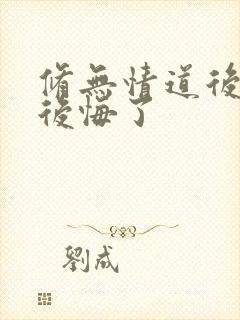 脩無情道後
後悔了
劉成